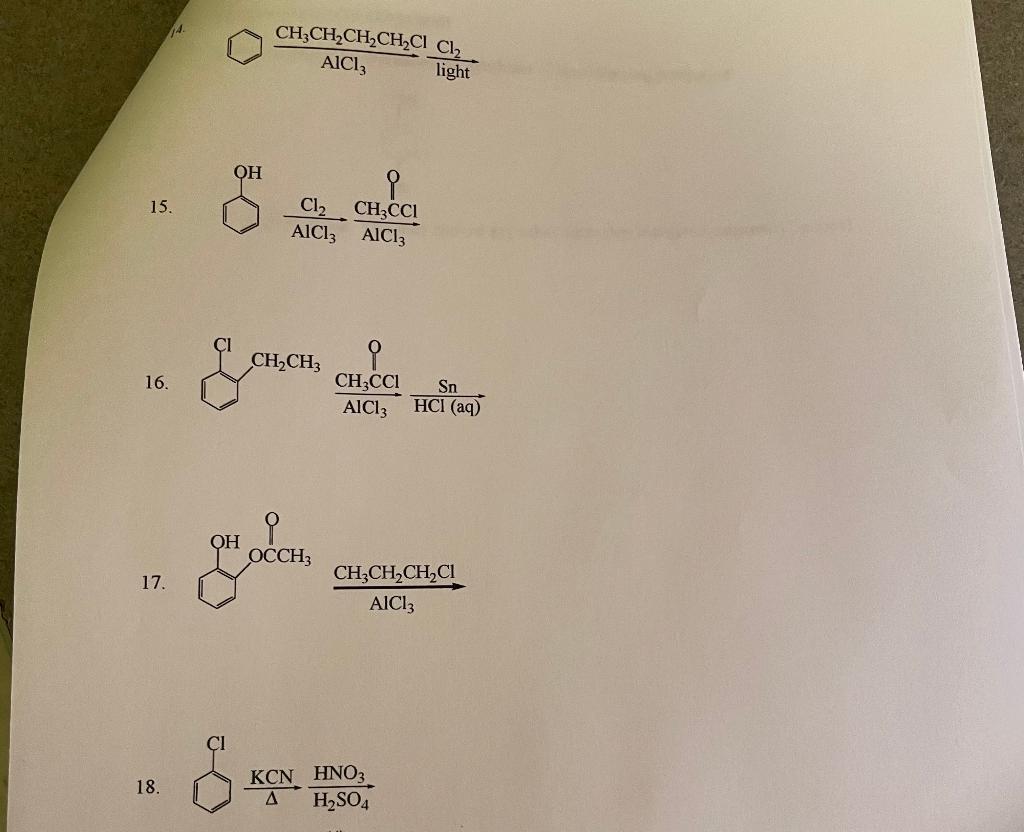 14.
CH₃CH₂CH₂CH₂Cl Cl₂
AlCl₃ light
OH O
15. Cl₂ CH₃CCl
AlCl₃ AlCl₃
Cl O
CH₂CH₃
16. CH₃CCl Sn
AlCl₃ HCl (aq)
O
OH
OCCH₃
17. CH₃CH₂CH₂Cl
AlCl₃
Cl
18. KCN HNO₃
Δ H₂SO₄